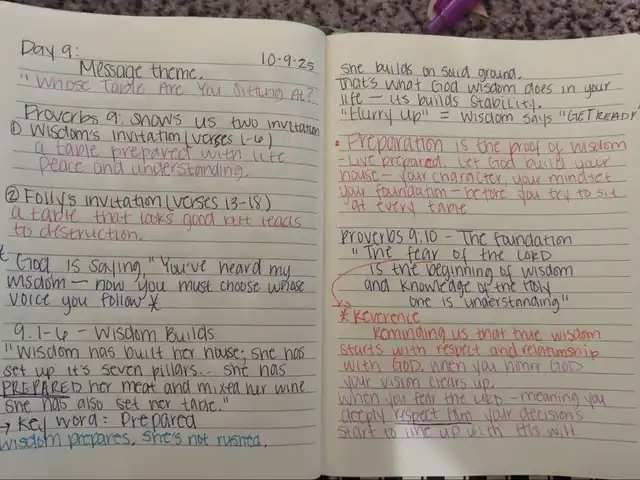 Day 9:
10-9-25
Message theme.
"Whose Table Are You Sitting At?
Proverbs 9: Shows us two invitation
① Wisdom's invitation (verses 1-6)
a table prepared with life
peace and understanding.
② Folly's invitation (verses 13-18)
a table that looks good but leads
to destruction.
God is saying, "You've heard my
wisdom - now you must choose whose
voice you follow *
9.1-6 - Wisdom Builds
"Wisdom has built her house; she has
set up it's seven pillars... she has
PREPARED her meat and mixed her wine
she has also set her table."
→ Key word: Prepared
Wisdom prepares, she's not rushed.
she builds on solid ground.
That's what God wisdom does in your
life - its builds stability.
"Hurry up" = wisdom says "GET READY
• Preparation is the proof of wisdom
- Live prepared. Let God build your
house - your character, your mindset
your foundation - before you try to sit
at every table
Proverbs 9.10 - The foundation
"The fear of the LORD
is the beginning of wisdom
and knowledge of the Holy
one is understanding"
* Reverence
Reminding us that true wisdom
starts with respect and relationship
with GOD. when you honor GOD
your vision clears up.
When you fear the LORD - meaning you
deeply respect him your decisions
start to line up with His will